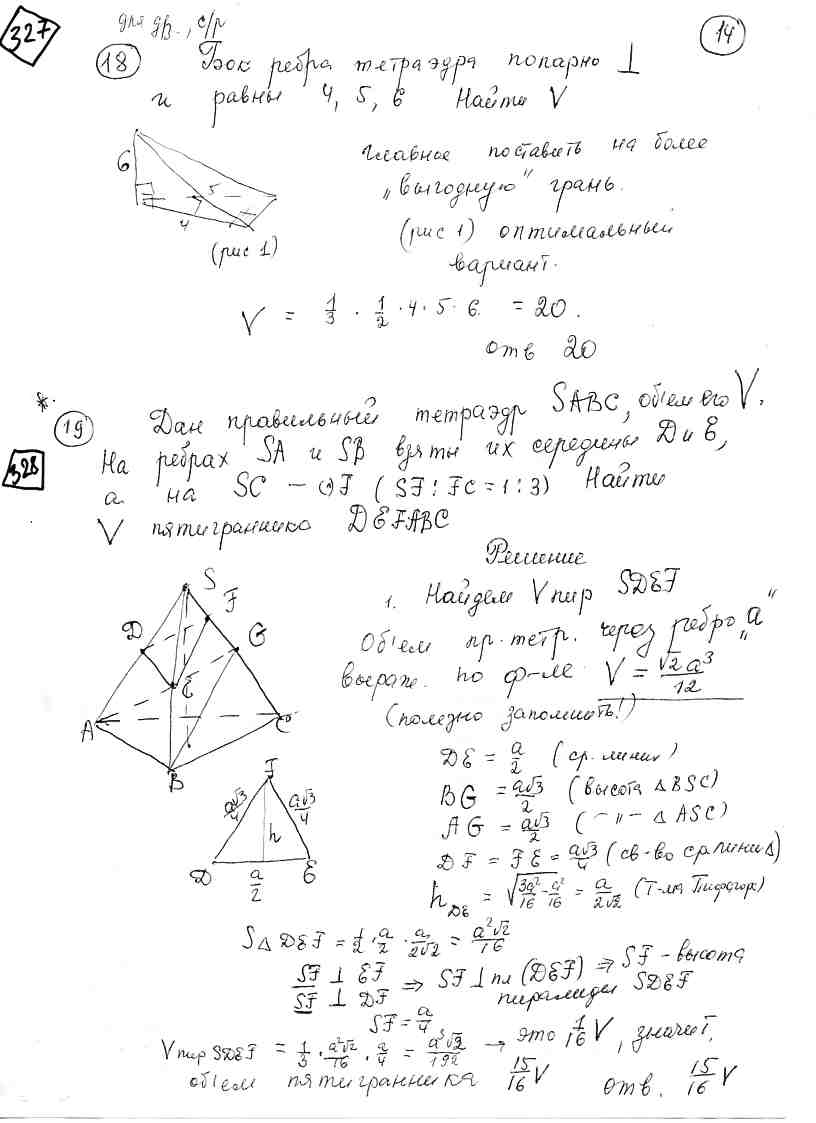 327
для дв., с/р
14
18 Бок ребра тетраэдра попарно ⊥
и равны 4, 5, 6 Найти V
6
5
4
(рис 1)
Главное поставить на более
„выгодную" грань.
(рис 1) оптимальный
вариант.
V = 1/3 · 1/2 · 4 · 5 · 6 = 20.
отв 20
*.
19 Дан правильный тетраэдр SABC, об'ем его V.
328
На ребрах SA и SB взяты их середины D и E,
а на SC – (·)F (SF:FC = 1:3) Найти
V пятигранника DEFABC
Решение
S
F
D
G
E
A
C
B
1. Найдем V пир SDEF
Об'ем пр. тетр. через ребро „а"
выраж. по ф-ле V = √2a³/12
(полезно запомнить!)
DE = a/2 (ср. линия)
BG = a√3/2 (высота Δ BSC)
AG = a√3/2 (–"– Δ ASC)
DF = FE = a√3/4 (св-во ср линии Δ)
h DE = √(3a²/16 - a²/16) = a/2√2 (Т-ма Пифагора)
F
a√3/4
a√3/4
h
D
a/2
E
S Δ DEF = 1/2 · a/2 · a/2√2 = a²√2/16
SF ⊥ EF
SF ⊥ DF ⇒ SF ⊥ пл (DEF) ⇒ SF - высота
пирамиды SDEF
SF = a/4
V пир SDEF = 1/3 · a²√2/16 · a/4 = a³√2/192 → это 1/16 V, значит,
об'ем пятигранника 15/16 V отв. 15/16 V